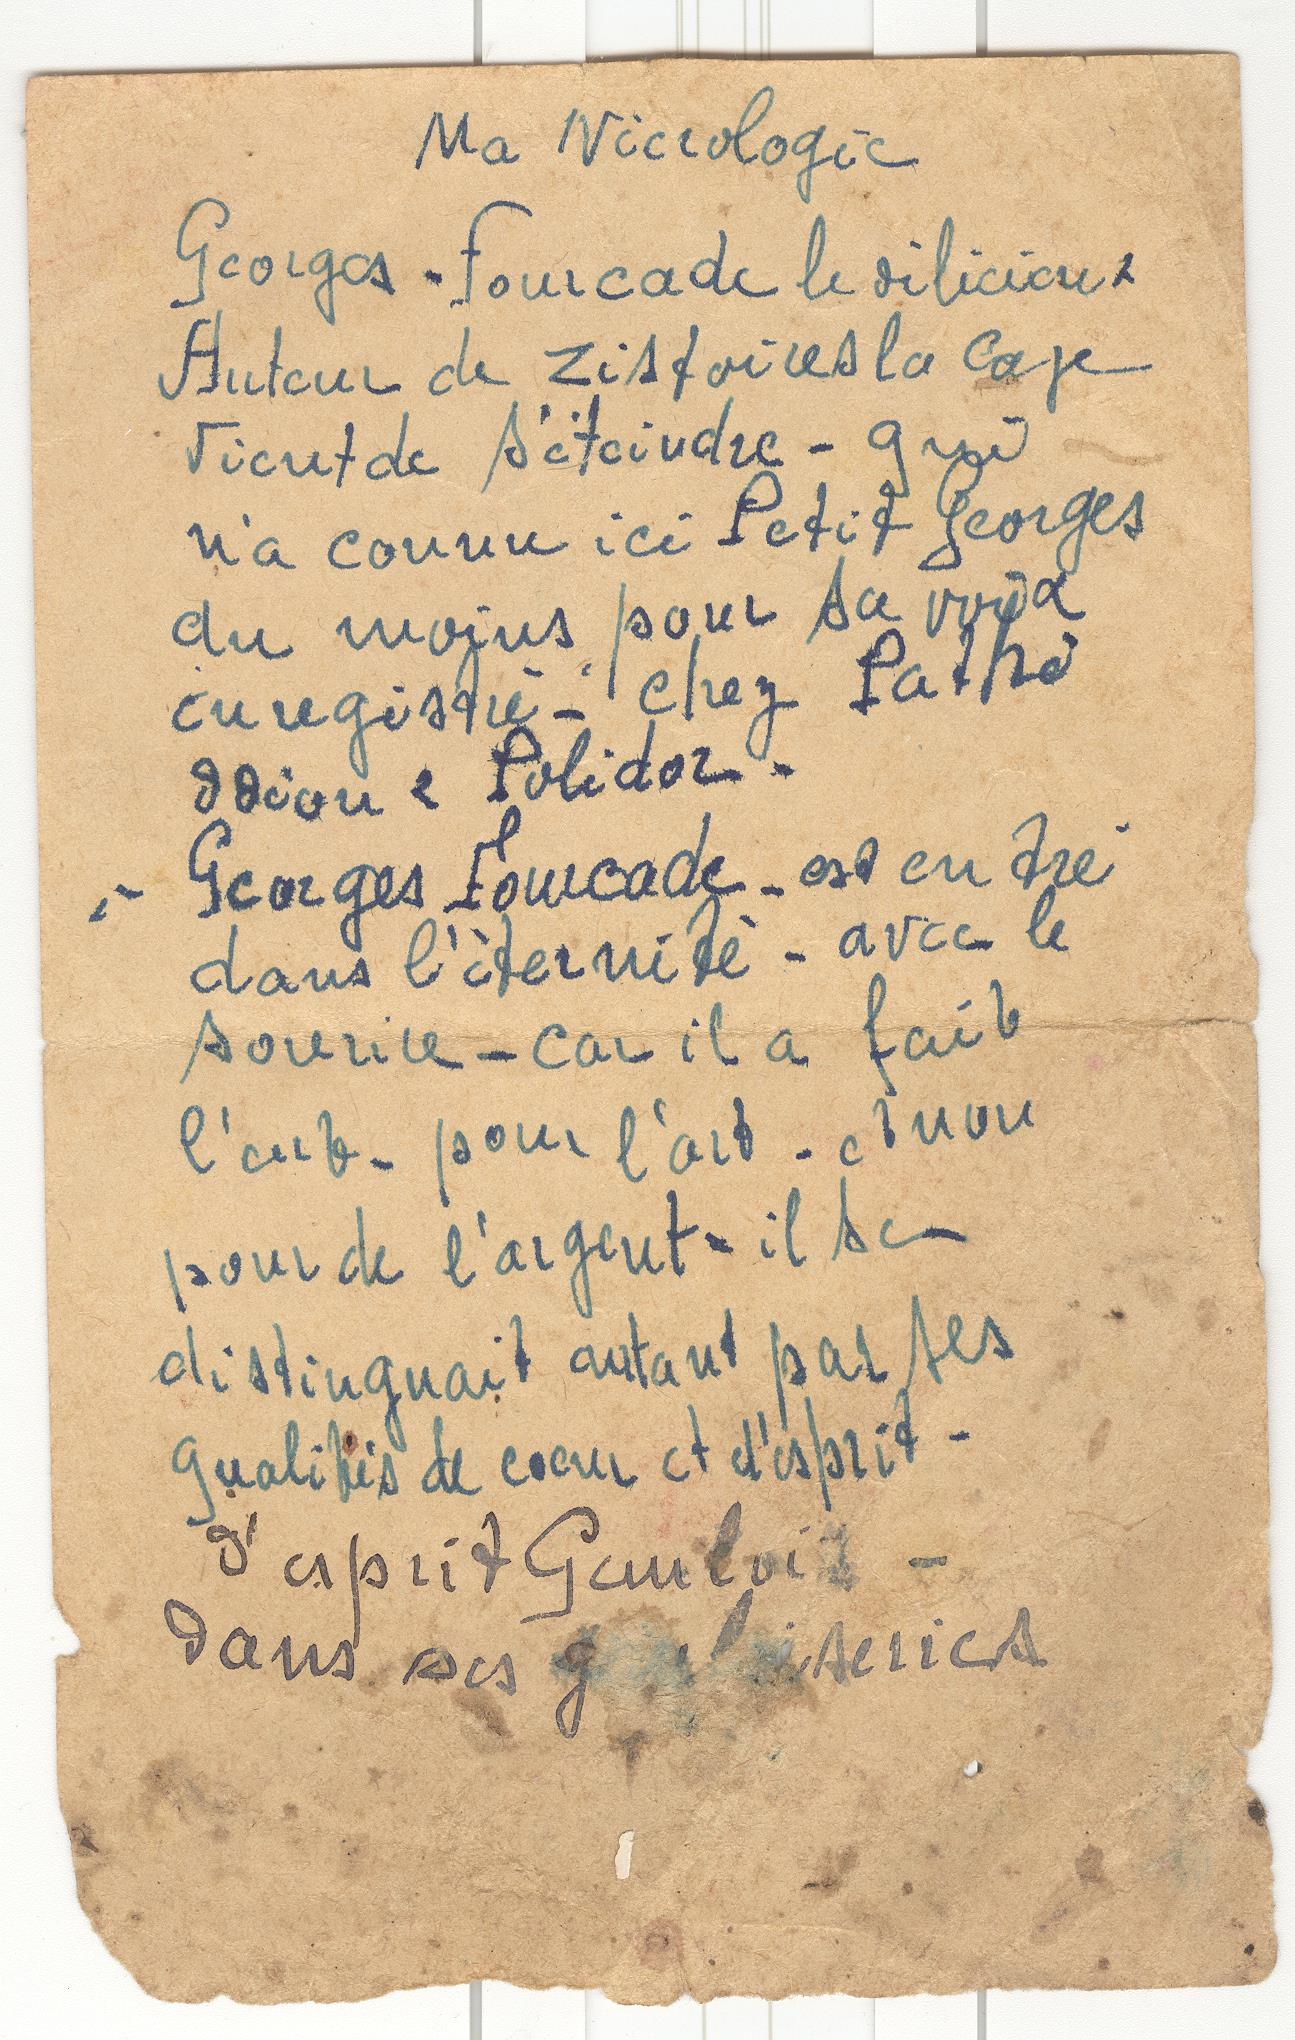 Ma Nécrologie
Georges - Fourcade le délicieux
Auteur de Zistoires la Caze
Vient de s'éteindre - qui
n'a connu ici Petit Georges
du moins pour sa voix
enregistré - chez Pathé
Odéon & Polidor -
Georges Fourcade - est entré
dans l'éternité - avec le
sourire - car il a fait
l'art - pour l'art - et non
pour de l'argent - il se
distinguait autant par ses
qualités de coeur et d'esprit -
d'esprit Gaulois -
Dans ses iseries